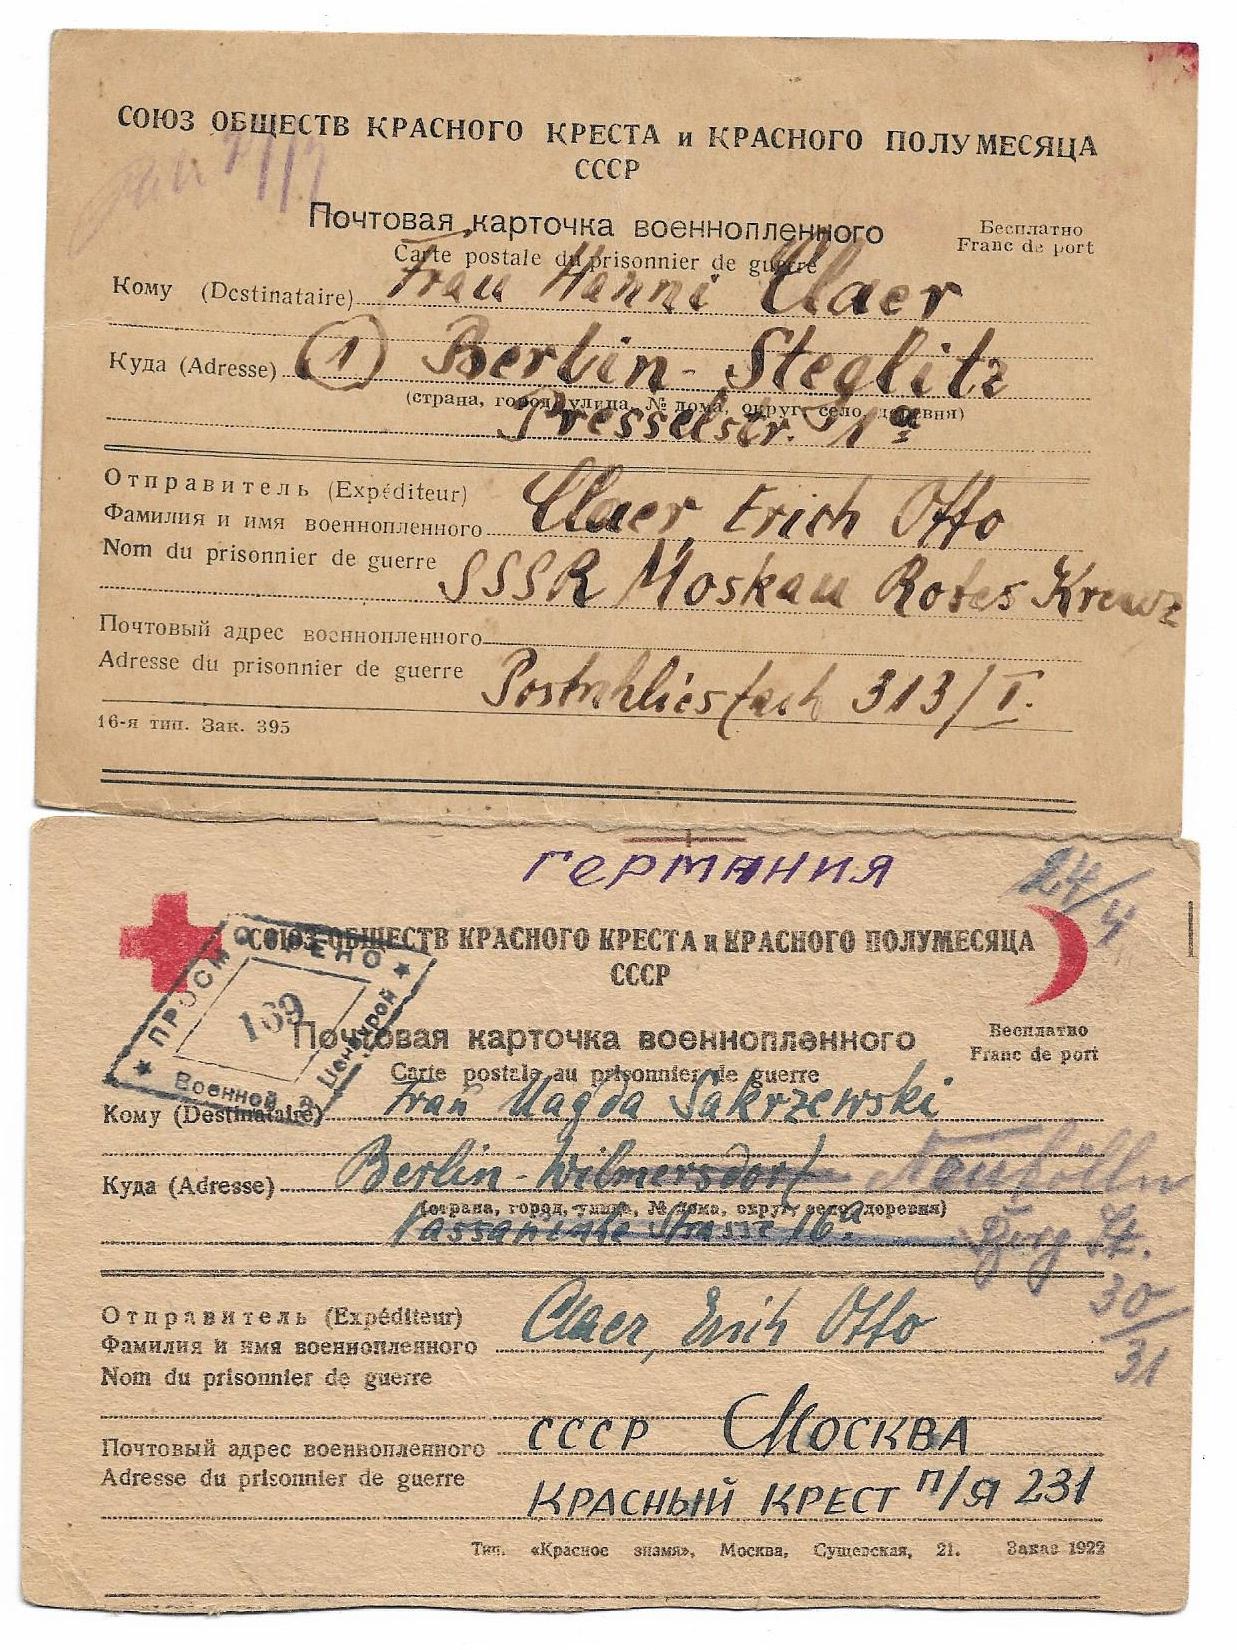 СОЮЗ ОБЩЕСТВ КРАСНОГО КРЕСТА и КРАСНОГО ПОЛУМЕСЯЦА
СССР
Почтовая карточка военнопленного
Бесплатно
Carte postale du prisonnier de guerre
Franc de port
Кому (Destinataire) Frau Hanni Claer
Куда (Adresse) 1 Berlin-Steglitz
(страна, город, улица, № дома, округ, село, деревня)
Presselstr. 1a
Отправитель (Expéditeur)
Фамилия и имя военнопленного Claer, Erich Otto
Nom du prisonnier de guerre SSSR Moskau Rotes Kreuz
Почтовый адрес военнопленного
Adresse du prisonnier de guerre Postschliesfach 313/I.
16-я тип. Зак. 395
ГЕРМАНИЯ
24/4
СОЮЗ ОБЩЕСТВ КРАСНОГО КРЕСТА и КРАСНОГО ПОЛУМЕСЯЦА
СССР
ПРОСМОТРЕНО
Военной Цензурой
169
Почтовая карточка военнопленного
Бесплатно
Carte postale au prisonnier de guerre
Franc de port
Кому (Destinataire) Frau Magda Sakrzewski
Куда (Adresse) Berlin-Wilmersdorf Neukölln
(страна, город, улица, № дома, округ, село, деревня)
Strasse 16a
St.
30/31
Отправитель (Expéditeur)
Фамилия и имя военнопленного Claer, Erich Otto
Nom du prisonnier de guerre
Почтовый адрес военнопленного СССР МОСКВА
Adresse du prisonnier de guerre КРАСНЫЙ КРЕСТ П/Я 231
Тип. «Красное знамя», Москва, Сущевская, 21. Заказ 1922